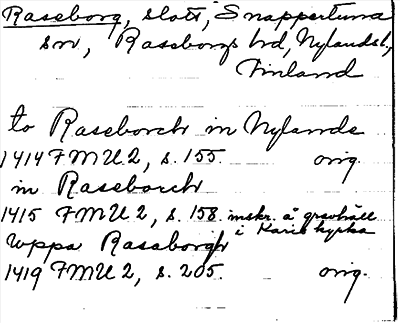 Raseborg, slott, Snappertuna
sn, Raseborgs hd, Nylands l.,
Finland
to Raseborch in Nylande
1414 FMU 2, s. 155. orig.
in Rasborch
1415 FMU 2, s. 158. inskr. å gravhäll
i Karis kyrka
wppa Raseborgh
1419 FMU 2, s. 205. orig.